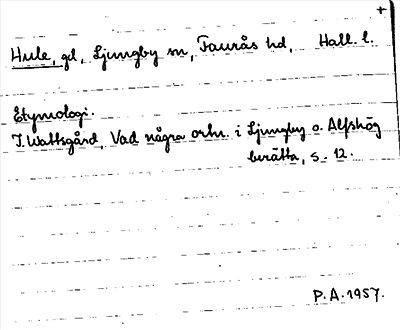 +
Hule, gd, Ljungby sn, Faurås hd, Hall. l.
Etymologi.
J. Wattsgård, Vad några ortn. i Ljungby o. Alfshög
berätta, s. 12.
P. A. 1957.